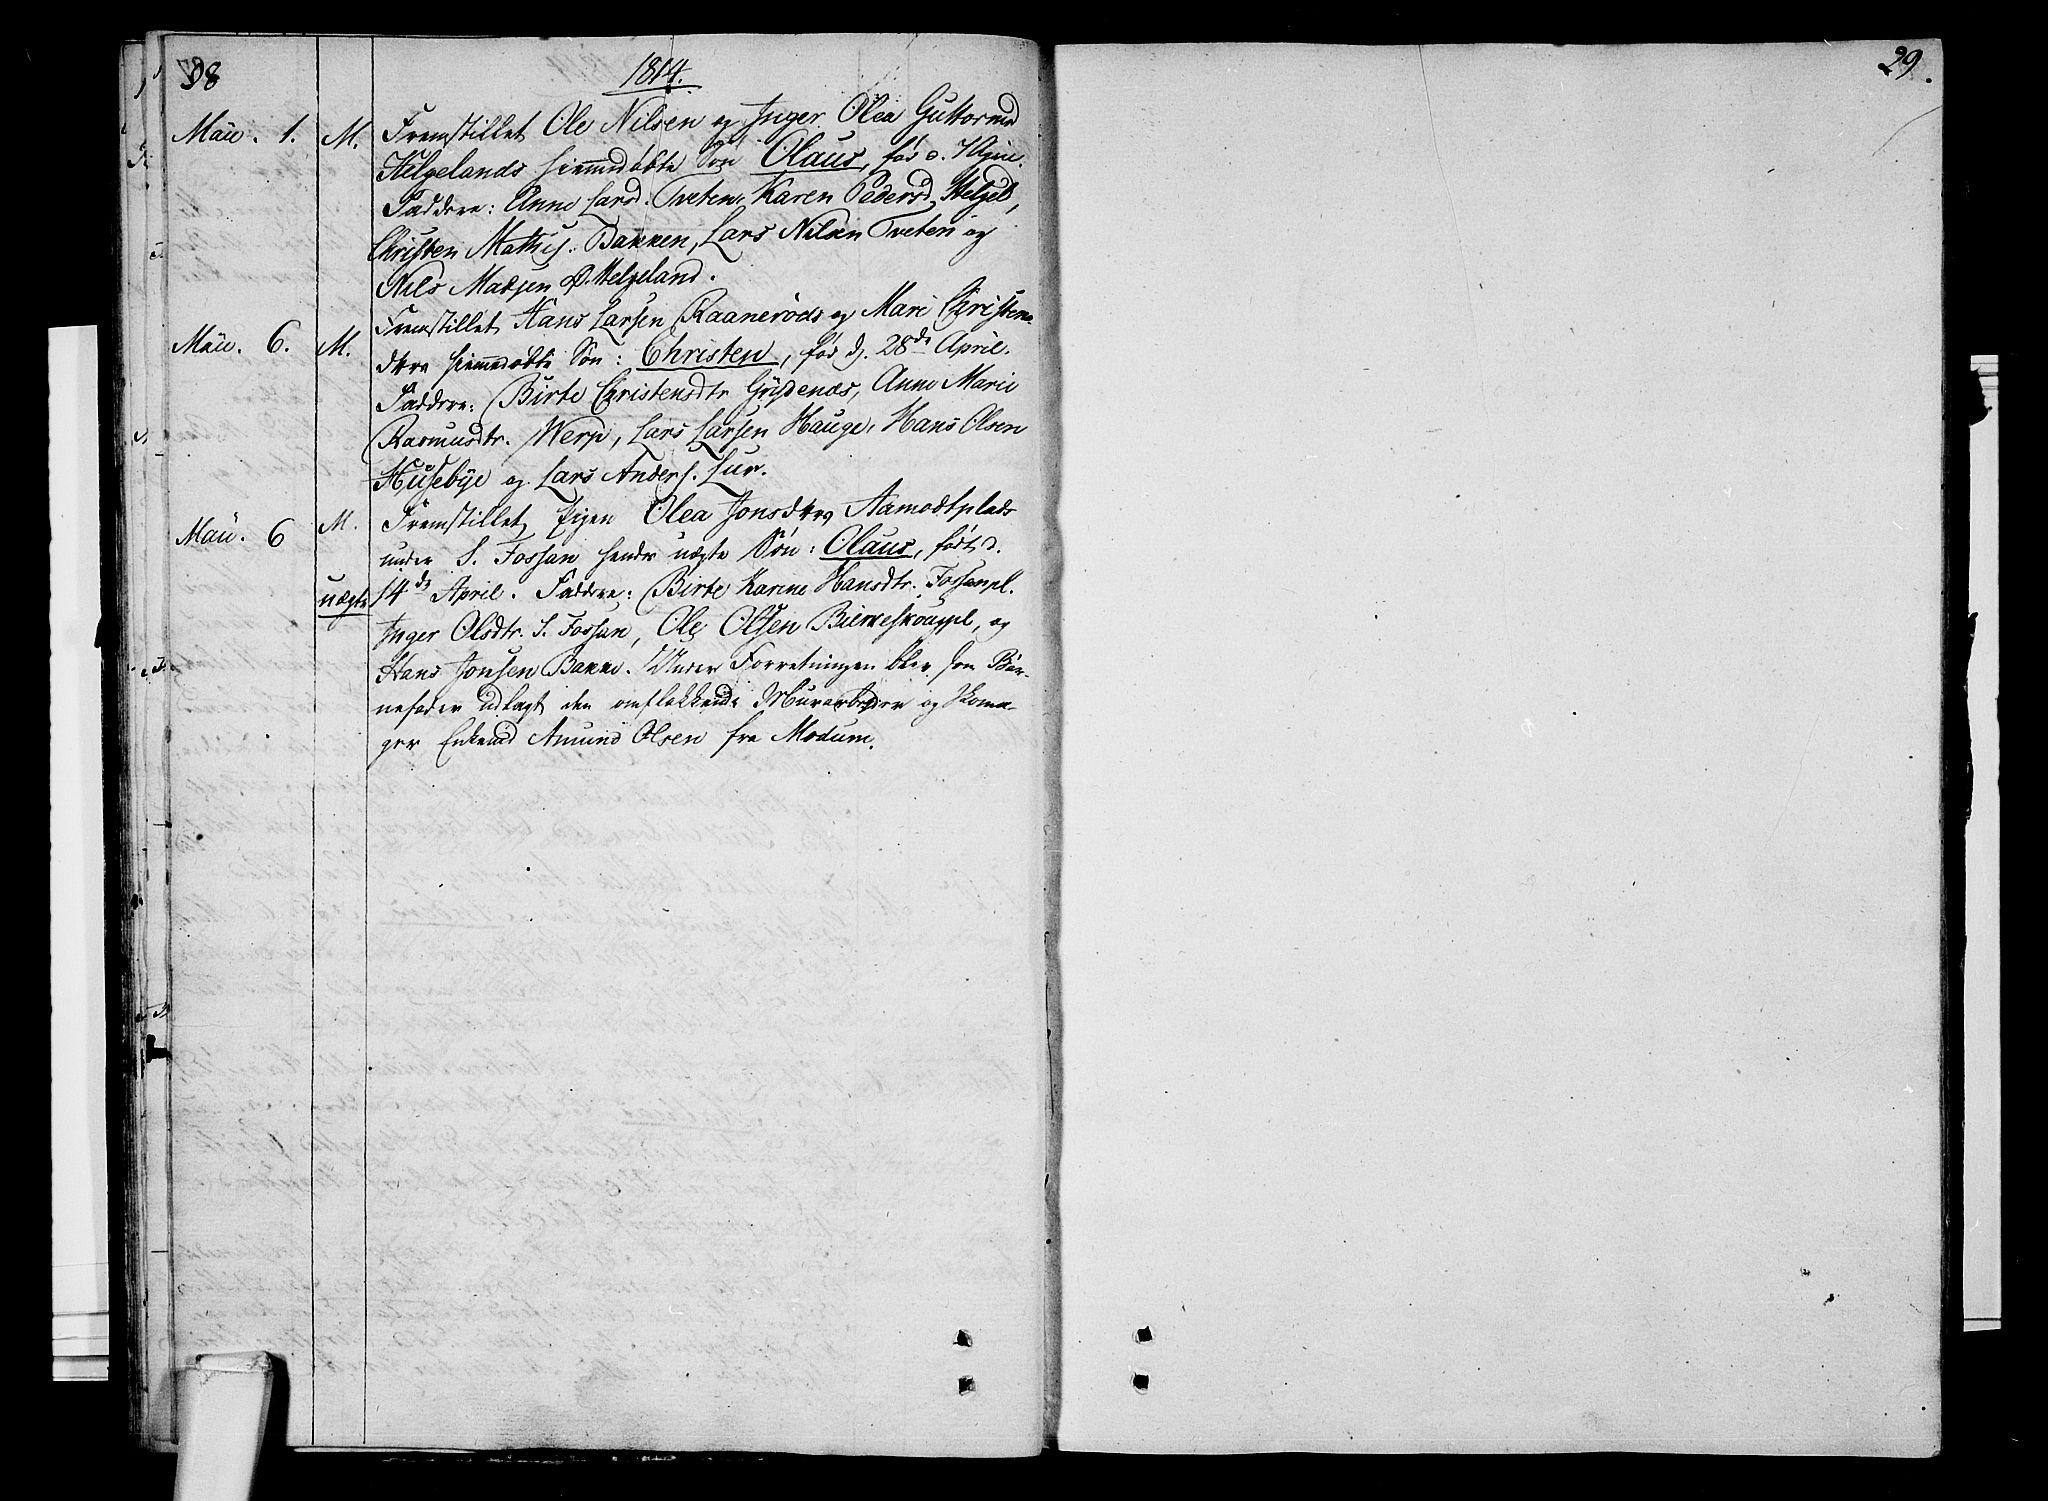 28
1814.
Maii. 1. M. Fremstillet Ole Nilsen og Inger Olea Guttormsd
Helgelands hiemmedøbte Søn Olaus, fød d. 7 April.
Faddere: Anne Larsd. Tveten, Karen Pedersd. Helgel,
Christen Mathis: Bakken, Lars Nilsen Tveten og
Nils Madsen Ø. Helgeland.
Maii. 6. M. Fremstillet Hans Larsen Raanerøds og Mari Christens
dtrs hiemmedøbte Søn: Christen, fød d. 28de April.
Faddere: Birte Christensdtr Græsdenæs, Anne Marie
Rasmusdtr. Werp, Lars Larsen Hauge, Hans Olsen
Husebye og Lars Anders. Lur.
Maii. 6 M. Fremstillet Pigen Olea Jonsdtrs Aamodtplads
under S. Fossan hendes uægte Søn: Olaus, født d.
uægte 14de April. Faddere: Birte Karine Hansdtr. Fossanpl.
Inger Olsdtr. S. Fossan, Ole Olsen Bierkeskougpl, og
Hans Jonsen Bakke. Under Forretningen blev som Bar-
nefader udlagt den omflakkende Murarbeider og Skoma-
ger Enkemd Amund Olsen fra Modum.
29.